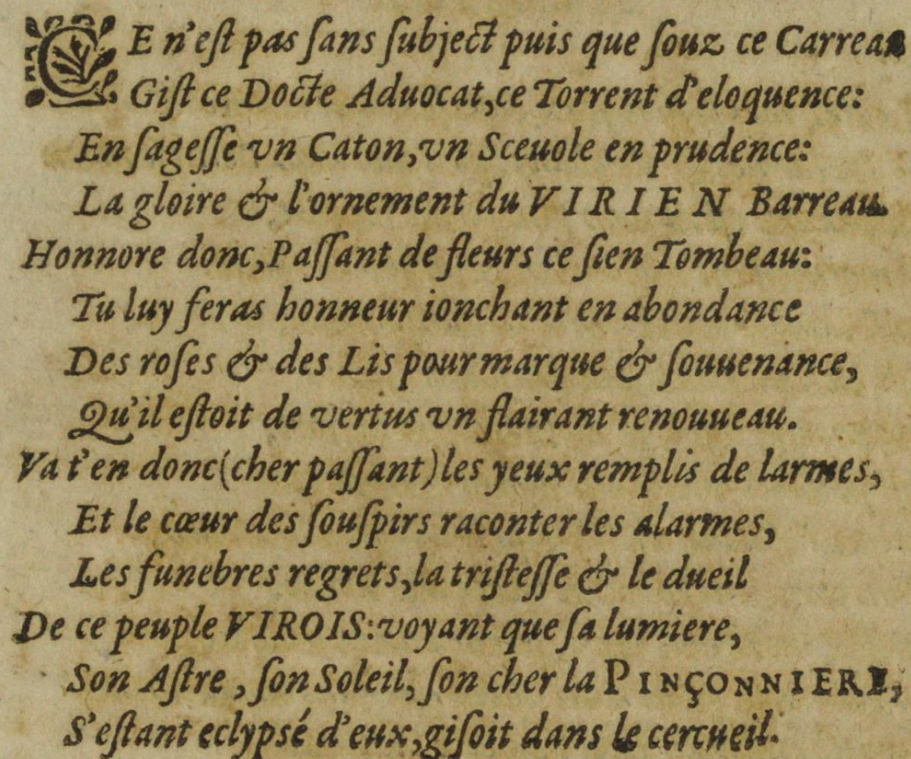 CE n'eſt pas ſans ſubject puis que ſouz ce Carreau
Giſt ce Docte Aduocat,ce Torrent d'eloquence:
En ſageſſe vn Caton,vn Sceuole en prudence:
La gloire & l'ornement du VIRIEN Barreau.
Honnore donc,Paſſant de fleurs ce ſien Tombeau:
Tu luy feras honneur ionchant en abondance
Des roſes & des Lis pour marque & ſouuenance,
Qu'il eſtoit de vertus vn flairant renouueau.
Va t'en donc(cher paſſant)les yeux remplis de larmes,
Et le cœur des ſouſpirs raconter les alarmes,
Les funebres regrets,la triſteſſe & le dueil
De ce peuple VIROIS:voyant que ſa lumiere,
Son Aſtre, ſon Soleil, ſon cher la PINÇONNIERE,
S'eſtant eclypsé d'eux,giſoit dans le cercueil.